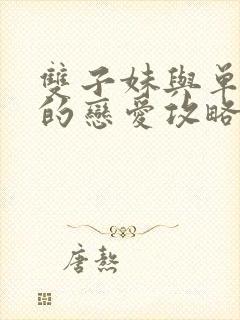 雙子妹與單
的戀愛攻略
唐熬